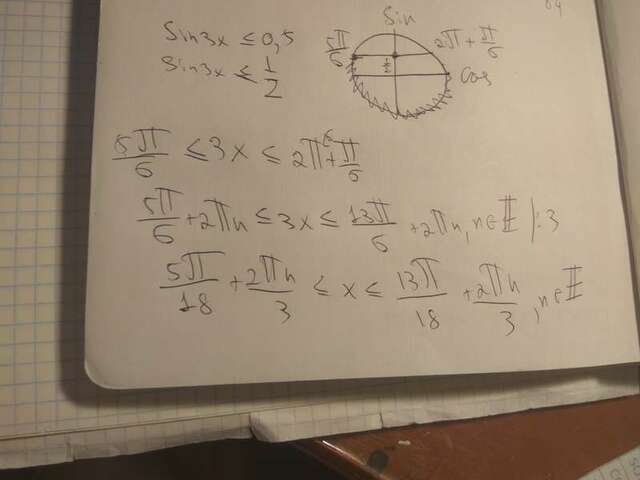 Sin3x ≤ 0,5
Sin3x ≤ 1/2
Sin
5π/6
2π + π/6
1/2
Cos
5π/6 ≤ 3x ≤ 2π + π/6
5π/6 + 2πn ≤ 3x ≤ 13π/6 + 2πn, n∈Z |:3
5π/18 + 2πn/3 ≤ x ≤ 13π/18 + 2πn/3, n∈Z